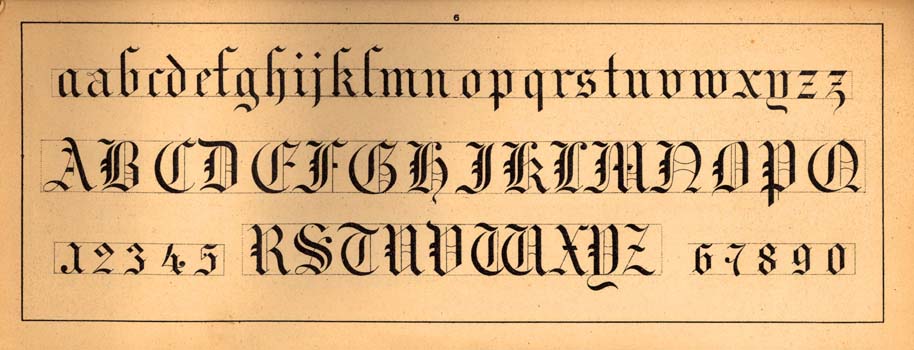 6
aabcdefghijklmnopqrstuvwxyzz
ABCDEFGHIJKLMNOPQ
12345 RSTUVWXYZ 67890